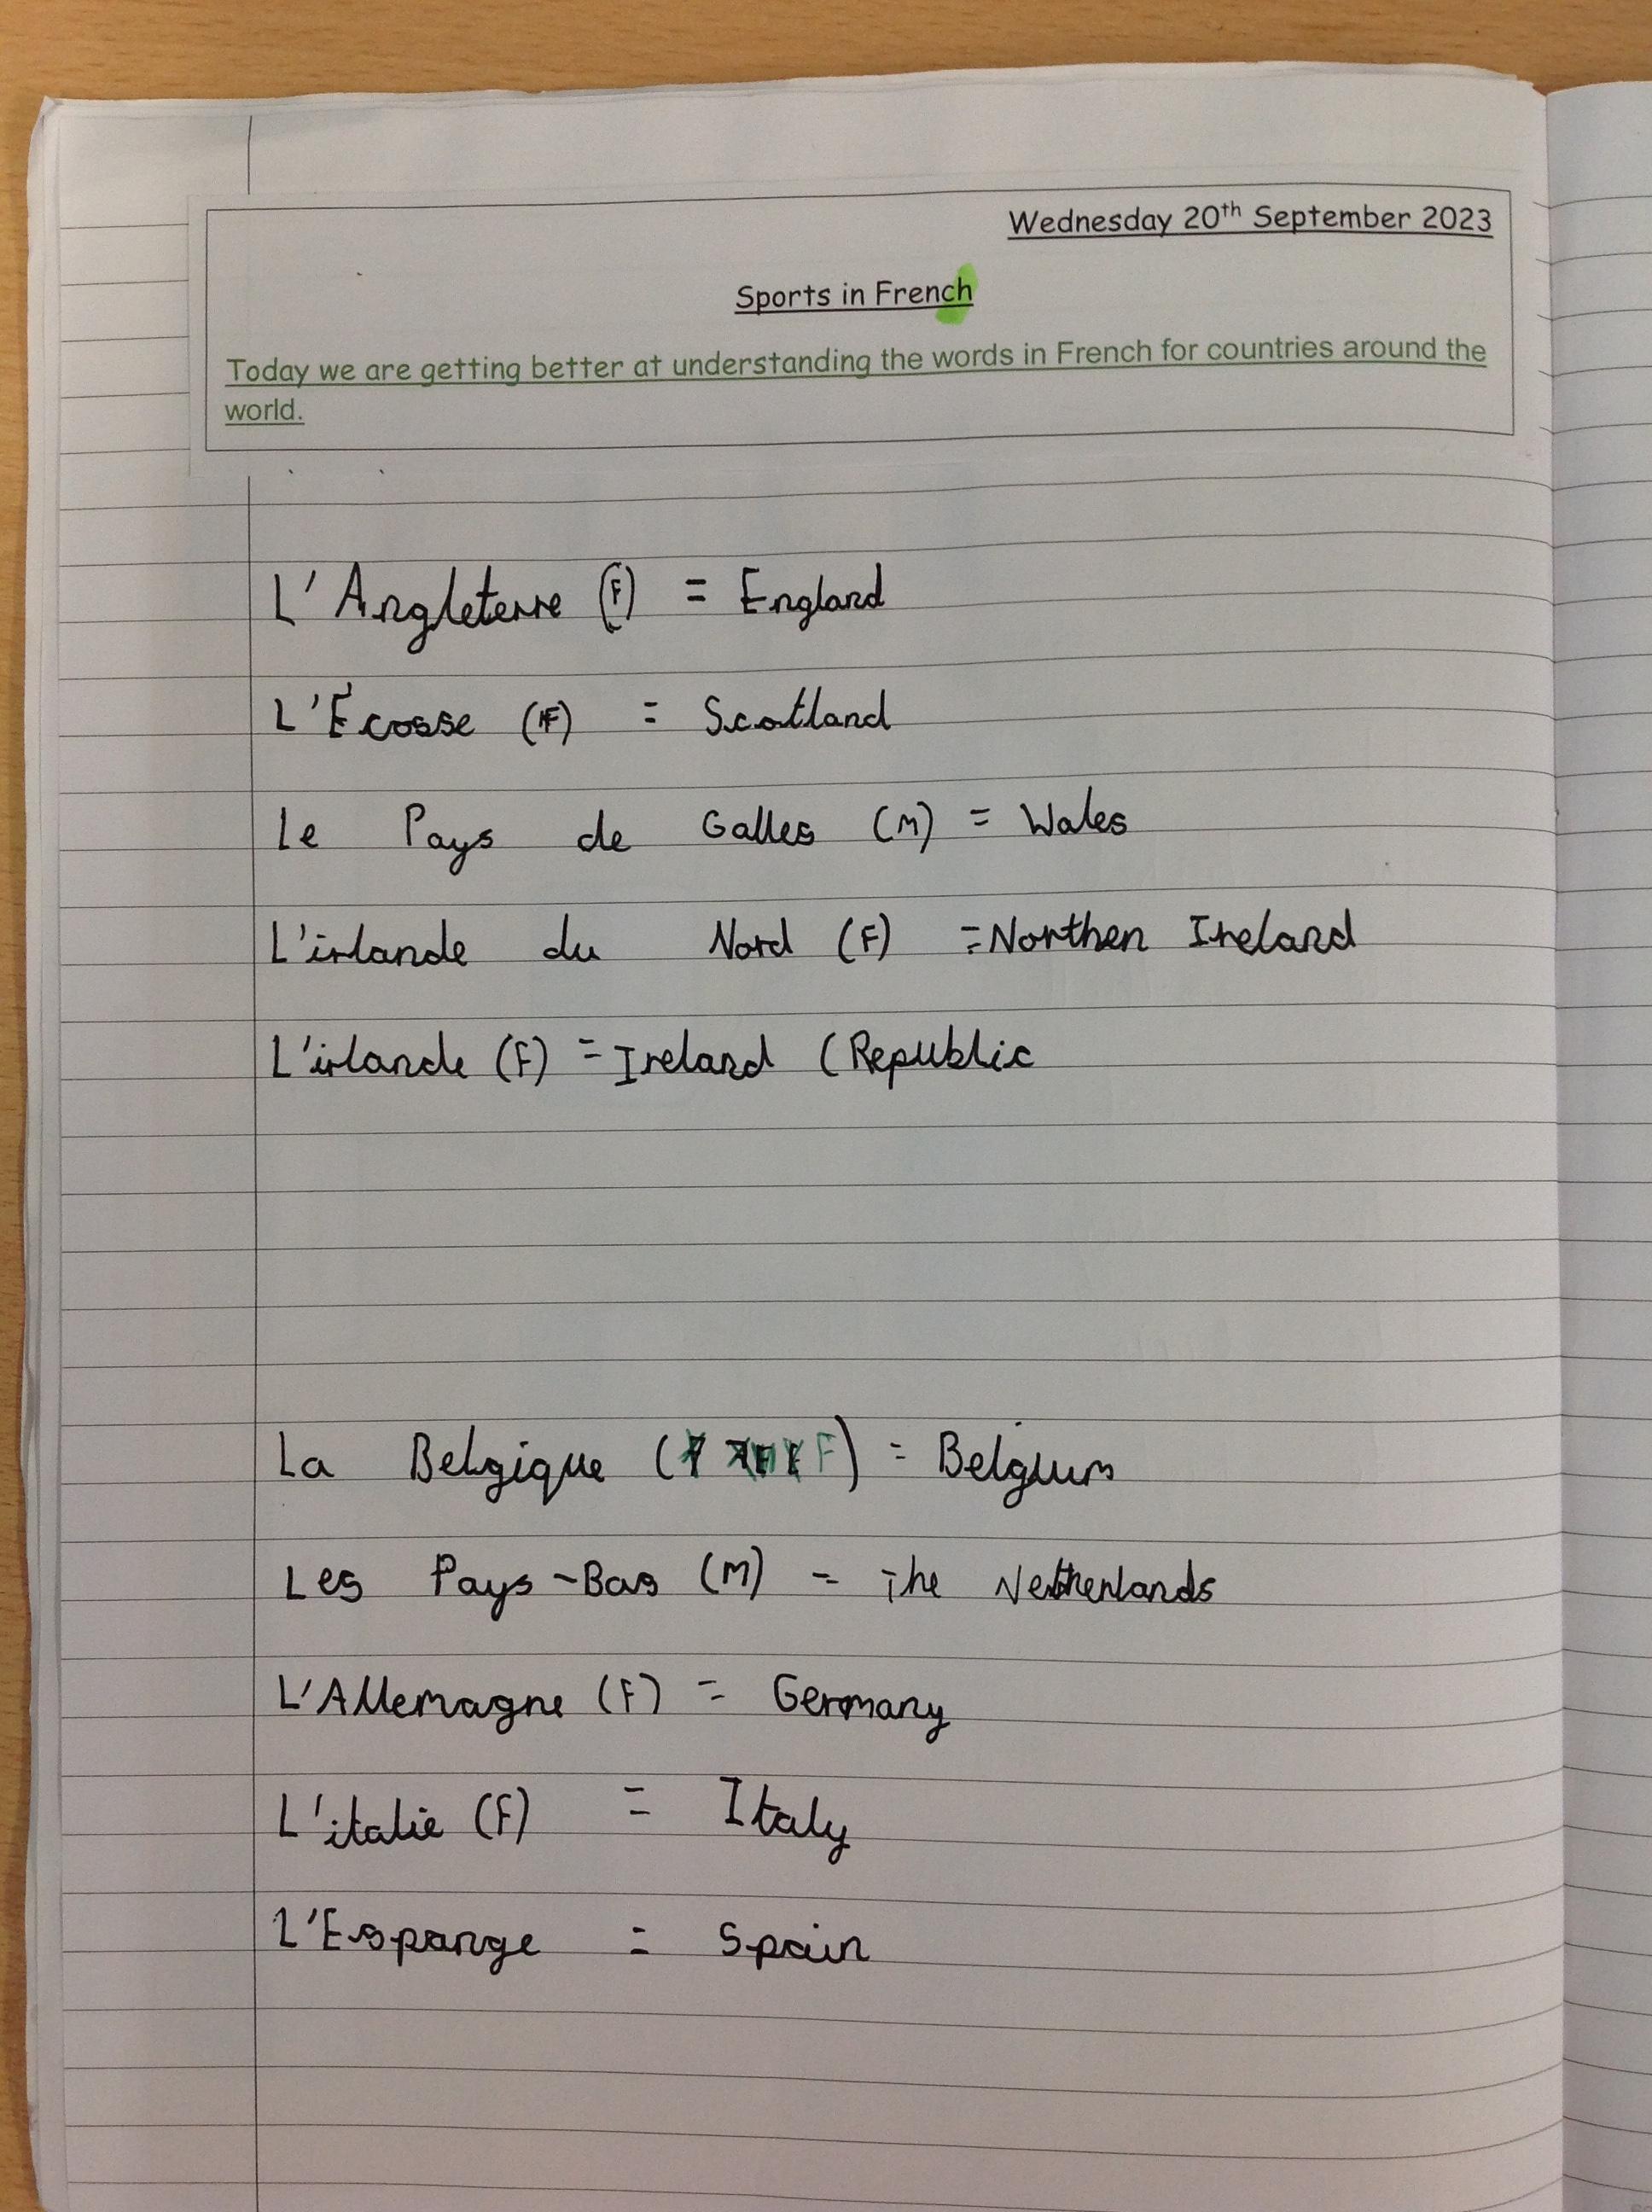 Wednesday 20th September 2023
Sports in French
Today we are getting better at understanding the words in French for countries around the
world.
L'Angleterre (F) = England
L'Écosse (F) = Scotland
Le Pays de Galles (M) = Wales
L'irlande du Nord (F) = Northen Ireland
L'irlande (F) = Ireland (Republic
La Belgique (F) = Belgium
Les Pays-Bas (M) = The Netherlands
L'Allemagne (F) = Germany
L'italie (F) = Italy
L'Espange = Spain